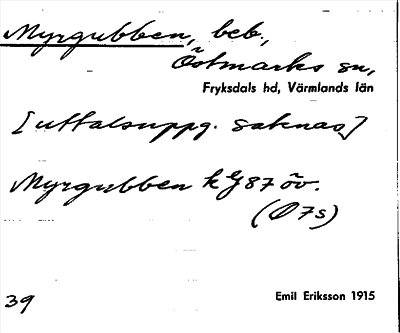 Myrgubben, beb.,
Östmarks sn,
Fryksdals hd, Värmlands län
[uttalsuppg. saknas]
Myrgubben k eg 87 öv.
(Ö 7s)
39
Emil Eriksson 1915